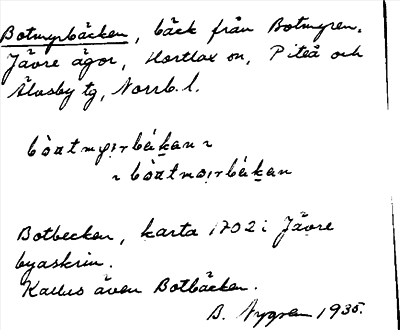 Botmyrbäcken, bäck från Botmyren,
Jävre ägor, Hortlax sn, Piteå och
Älvsby tg, Norrb. l.
Botbecken, karta 1702 i Jävre
byaskrin.
Kallas även Botbäcken.
B. Nygren 1935.